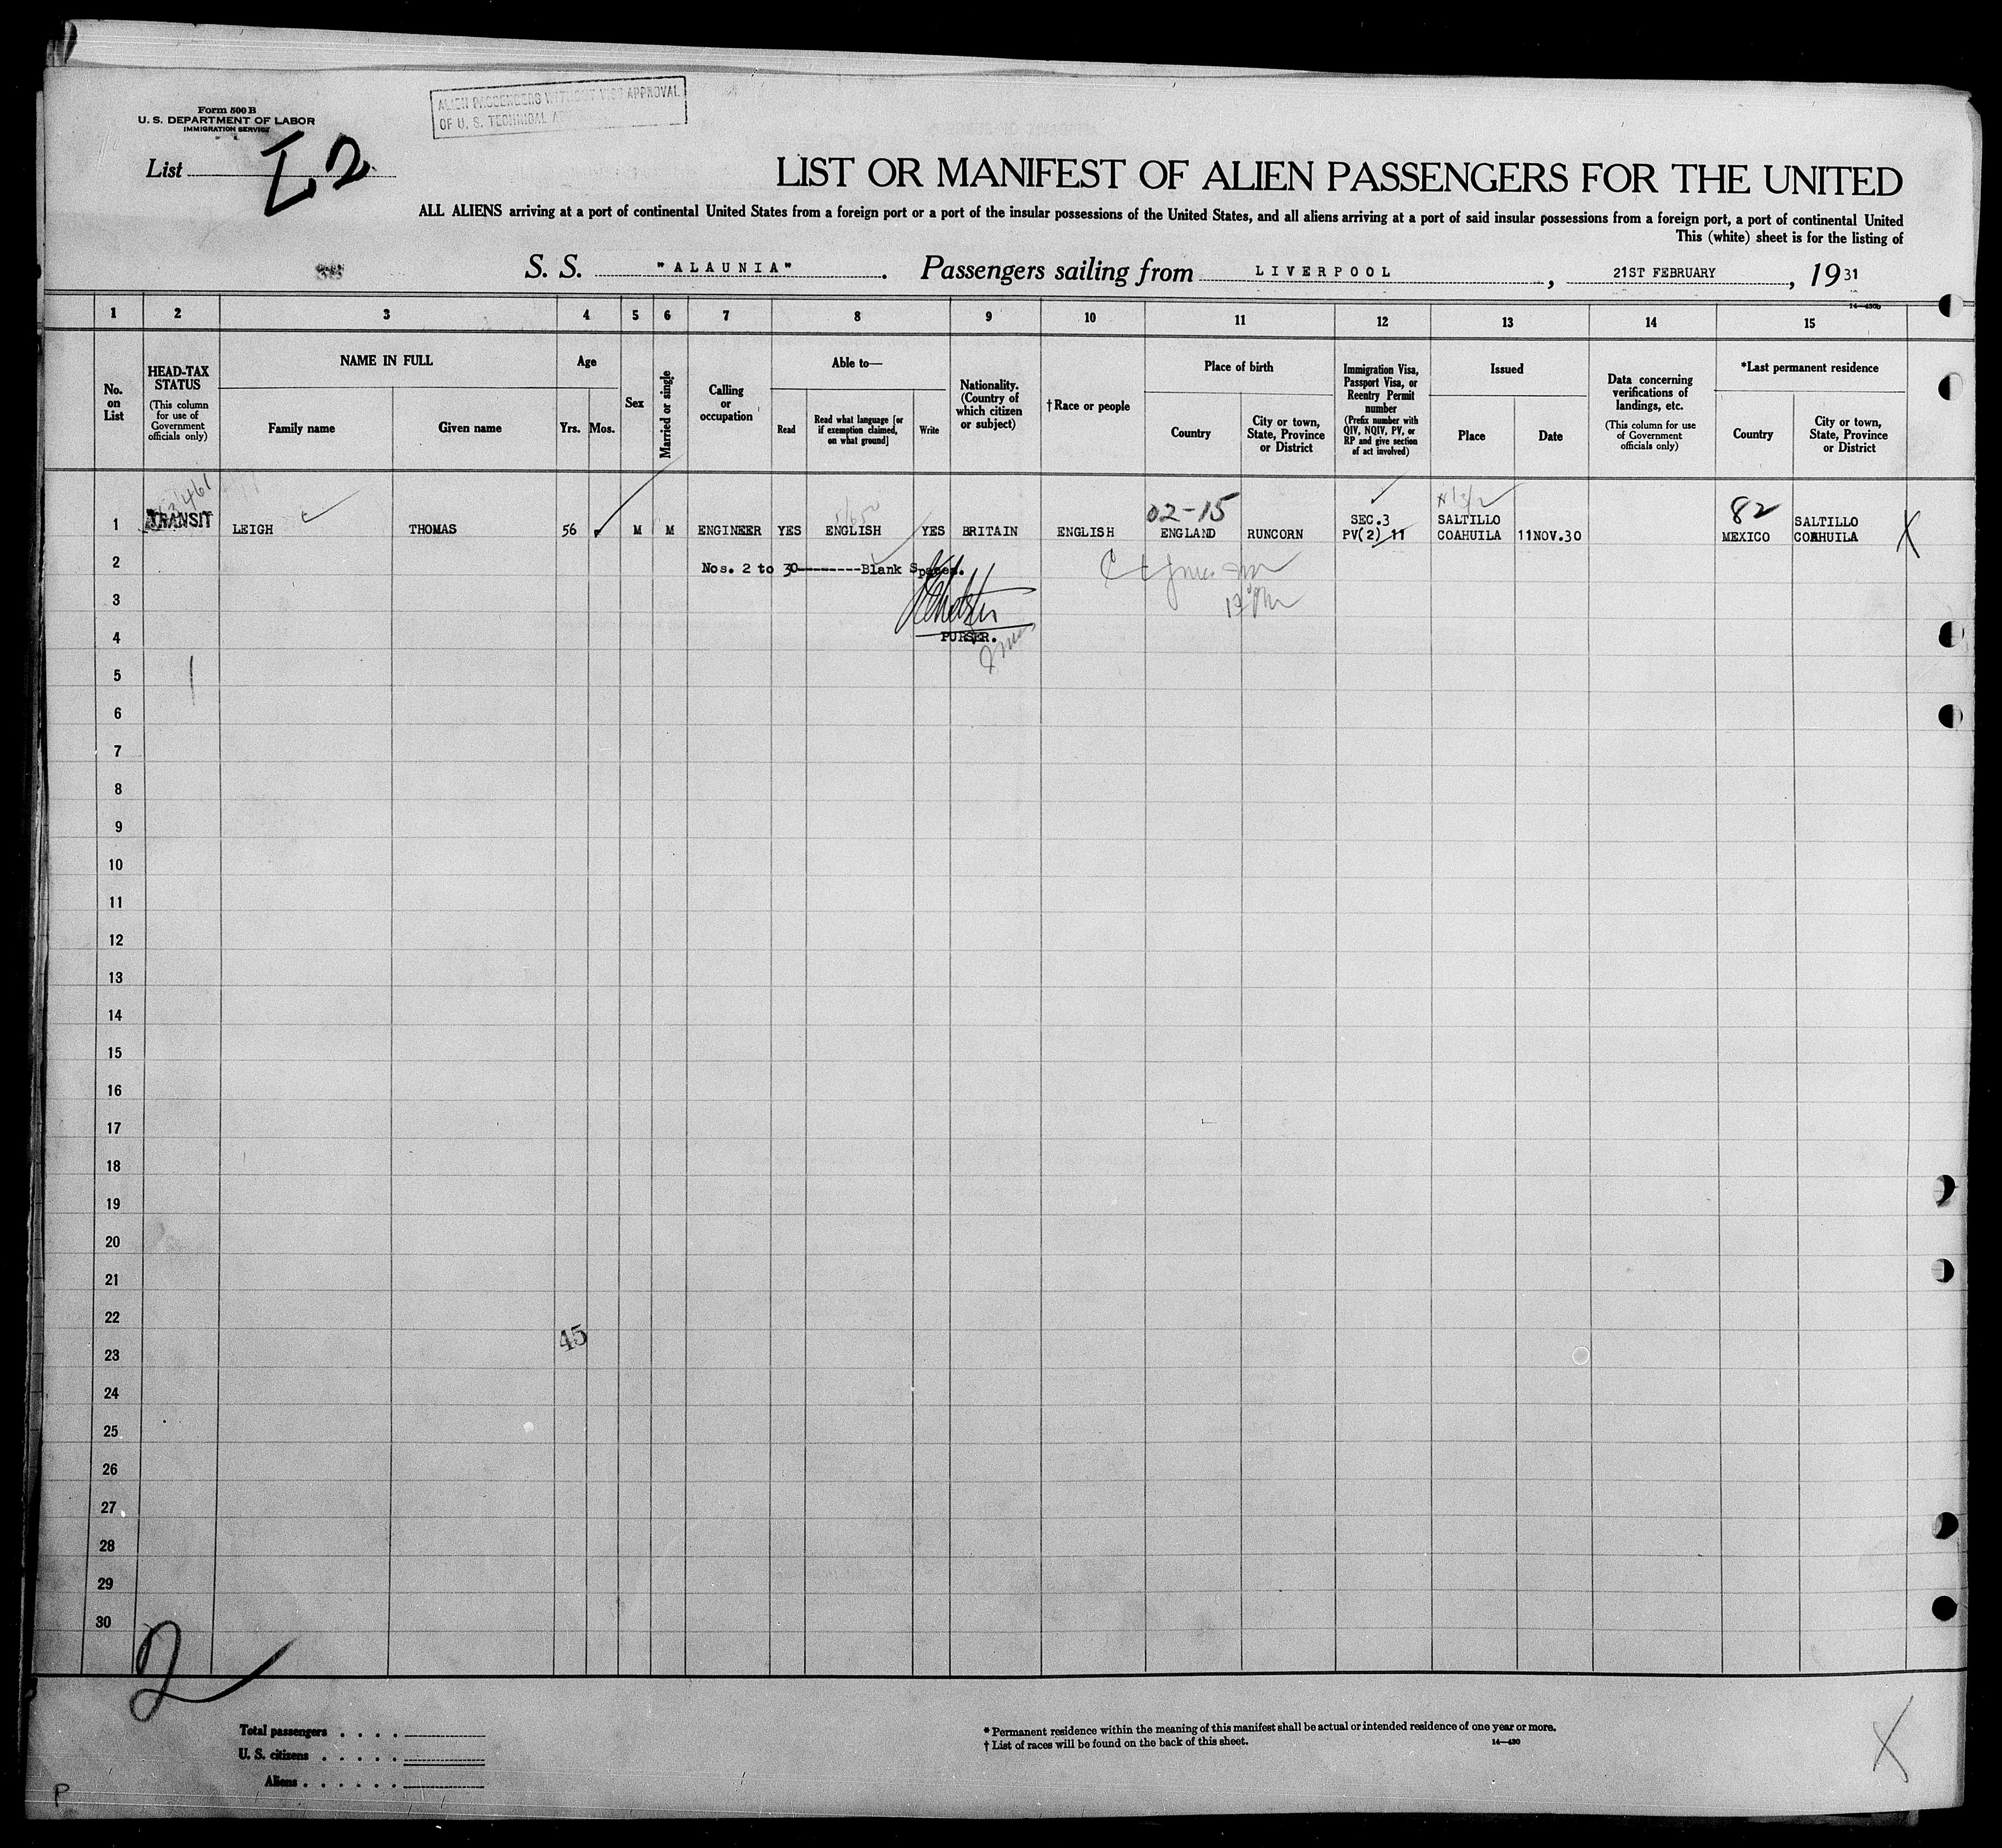 Form 500 B
U. S. DEPARTMENT OF LABOR
IMMIGRATION SERVICE
ALIEN PASSENGERS WITHOUT VISA APPROVAL
OF U. S. TECHNICAL
List 2
LIST OR MANIFEST OF ALIEN PASSENGERS FOR THE UNITED
ALL ALIENS arriving at a port of continental United States from a foreign port or a port of the insular possessions of the United States, and all aliens arriving at a port of said insular possessions from a foreign port, a port of continental United
This (white) sheet is for the listing of
S. S. "ALAUNIA". Passengers sailing from LIVERPOOL, 21ST FEBRUARY, 1931
1 2 3 4 5 6 7 8 9 10 11 12 13 14 15
No. on List
HEAD-TAX STATUS
(This column for use of Government officials only)
NAME IN FULL
Family name
Given name
Age
Yrs.
Mos.
Sex
Married or single
Calling or occupation
Able to—
Read
Read what language [or if exemption claimed, on what ground]
Write
Nationality. (Country of which citizen or subject)
†Race or people
Place of birth
Country
City or town, State, Province or District
Immigration Visa, Passport Visa, or Reentry Permit number
(Prefix number with QIV, NQIV, PV, or RP and give section of act involved)
Issued
Place
Date
Data concerning verifications of landings, etc.
(This column for use of Government officials only)
*Last permanent residence
Country
City or town, State, Province or District
02-15 SEC.3 SALTILLO 82 SALTILLO
1 TRANSIT LEIGH THOMAS 56 M M ENGINEER YES ENGLISH YES BRITAIN ENGLISH ENGLAND RUNCORN PV(2) 11 COAHUILA 11NOV.30 MEXICO COAHUILA X
2 Nos. 2 to 30--------Blank Spaces.
3
4 PURSER.
5
6
7
8
9
10
11
12
13
14
15
16
17
18
19
20
21
22
45
23
24
25
26
27
28
29
30
2
Total passengers . . . .
U. S. citizens . . . . .
Aliens . . . . . .
* Permanent residence within the meaning of this manifest shall be actual or intended residence of one year or more.
† List of races will be found on the back of this sheet. 14—430
X
P